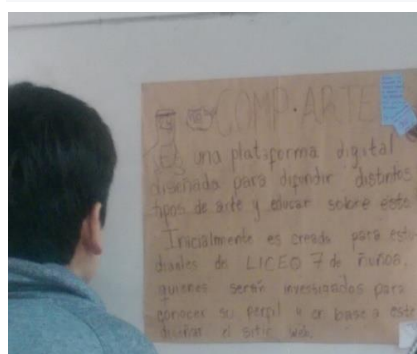 COMP·ARTE
una plataforma digital
diseñada para difundir distintos
tipos de arte y educar sobre este
Inicialmente es creado para estu-
diantes de LICEO 7 de ñuñoa,
quienes serán investigados para
conocer su perfil y en base a este
diseñar el sitio web.